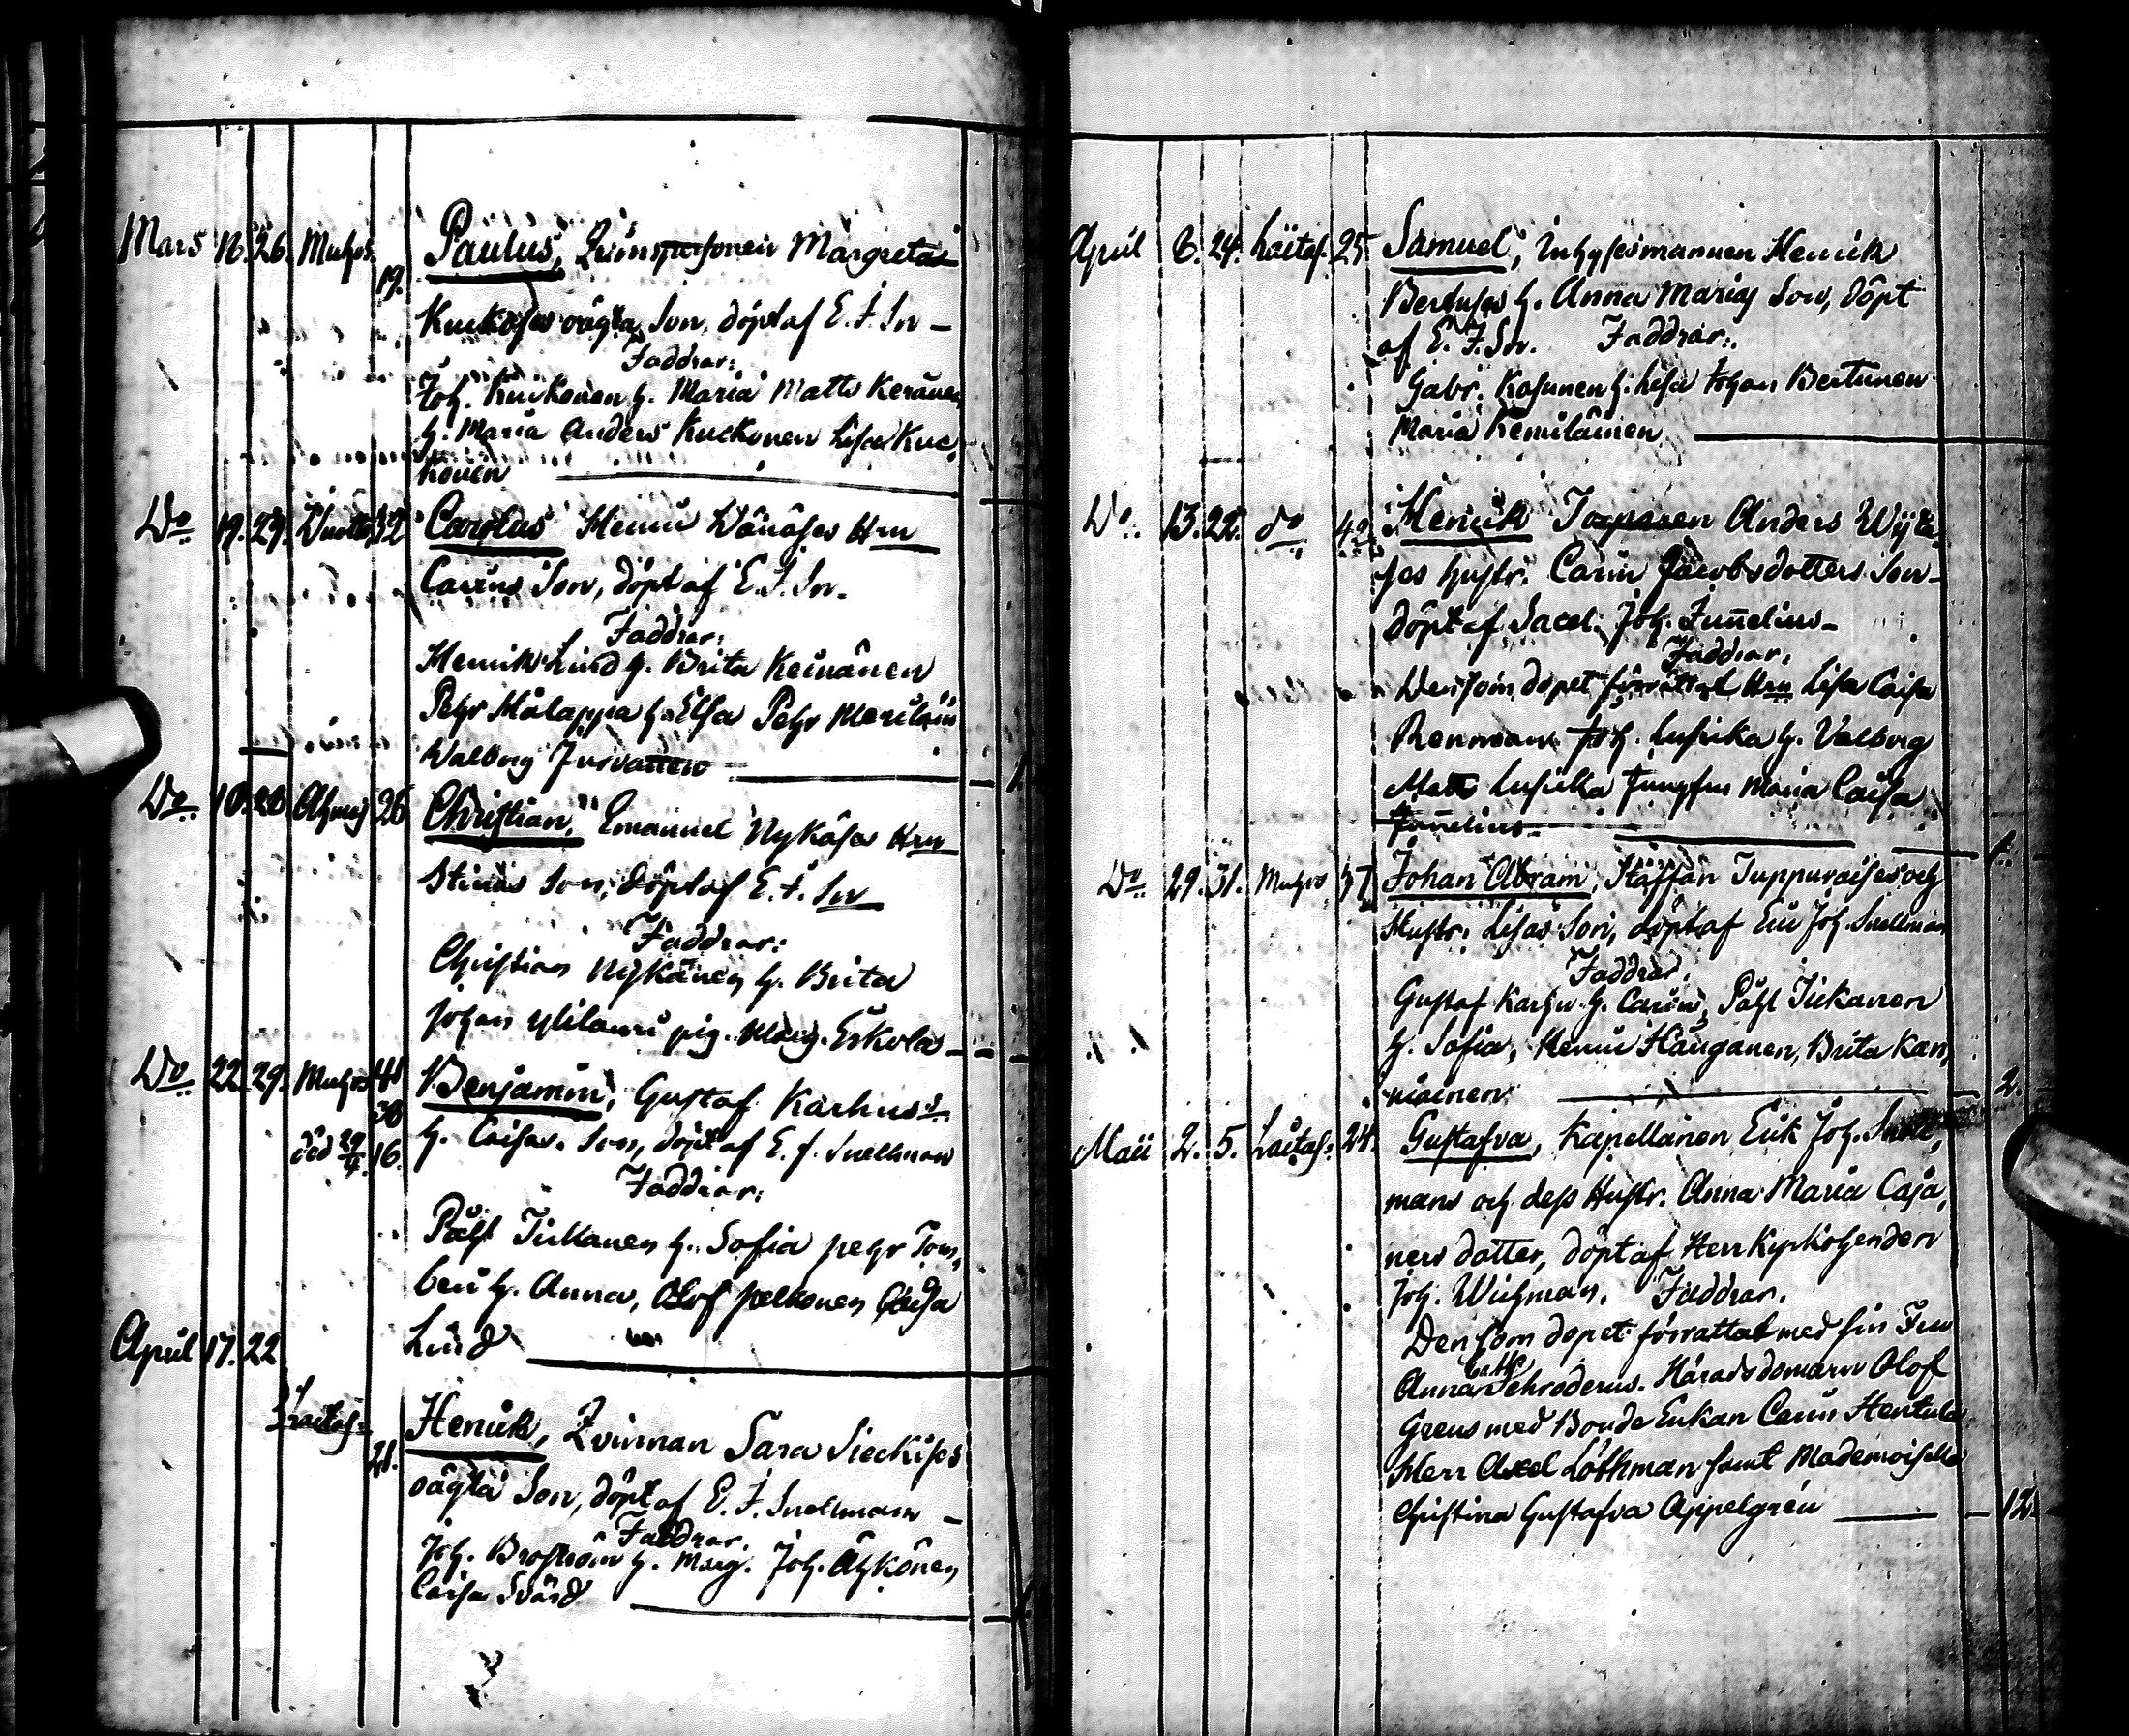 Mars 16. 26. Muhos 19. Paulus, Qvinspersonen Margretas
Kuckoses oägta Son, döpt af E. J. Sn -
Faddrar:
Joh. Kuckonen h. Maria Matts Keränen
h. Maria Anders Kuckonen Lisa Kuc,
konen
Do 19. 29. 32 Carolus Henric Wänäses Hru
Carins Son, döpt af E. J. Sn.
Faddrar:
Henrik Lind h. Brita Keinänen
Pehr Målappa h. Elsa Pehr
Walborg Jurvanen
Do 10. 20. Ahmas 26 Christian, Emanuel Nykäses Hru
Stinas Son, döpt af E. J. Sn
Faddrar:
Christian Nykänen h. Brita
Johan Ylilauri pig. Marg. Eskola
Do 22. 29. Muhos 41 Benjamin, Gustaf Karhus
38
h. Caisas Son, döpt af E. J. Snellman
död 29/4. 16.
Faddrar:
Påhl Tickanen h. Sofia pehr Tom,
beri h. Anna, Olof pelkonen Caisa
Lind
April 17. 22
Laitas: 21. Henrik, Qvinnan Sara Sieckises
oägta Son, döpt af E. J. Snellman -
Faddrar.
Joh. Broström h. Marg. Joh. Ähkönen
Caisa Svärd
April 8. 24. Laitas. 25 Samuel, Inhysesmannen Henrik
Bertuses h. Anna Marias Son, döpt
af E. J. Sn. Faddrar:
Gabr. Kosunen h. Lisa Johan Bertunen
Maria Kemiläinen
Do. 13. 22. do 42 Henrik Torparen Anders
ses hustr. Carin Jacobsdotters Son
döpt af Sacel. Joh. Junnelius
Faddrar:
Den som dopet förrättat Hru Lisa Caisa
Renman Joh. Lusicka h. Valborg
Matts Lusicka Jungfru Maria Caisa
Junnelius 1.
Do. 29. 31. Muhos 37 Johan Abram, Staffan Tuppuraises och
Hustr. Lisas Son, döpt af Eric Joh. Snellman
Faddrar.
Gustaf Karhu h. Carin, Påhl Tickanen
h. Sofia, Henric Hauganen, Brita Kan,
niainen 2.
Maii 2. 5. Laitas: 24. Gustafva, Kapellanen Erik Joh. Snell,
mans och dess Hustr. Anna Maria Caja,
ners dotter, döpt af Herr Kyrkoherden
Joh. Wichman. Faddrar.
Den som dopet förrättat med sin Fru
Anna Cath Schroderus. Häradsdomarn Olof
Greus med Bonde Enkan Carin Hentula
Herr Axel Löthman samt Mademoiselle
Christina Gustafva Appelgrén 12.